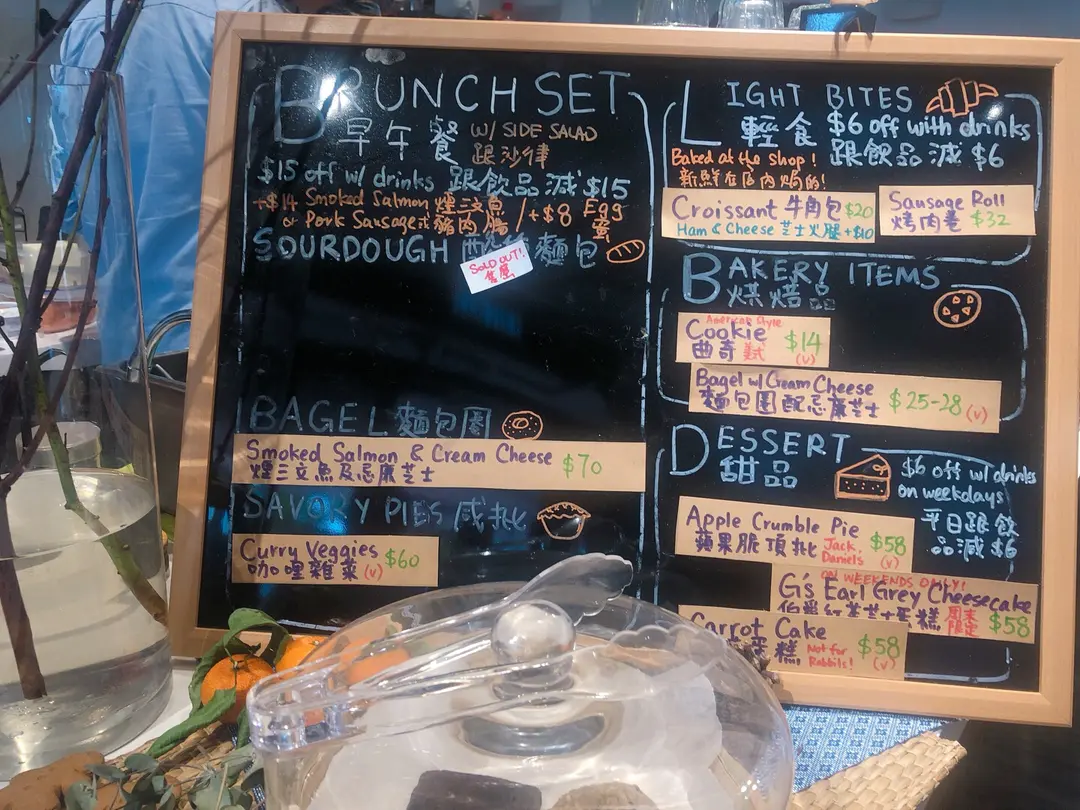 BRUNCH SET
早午餐 W/ SIDE SALAD
跟沙律
$15 off w/ drinks 跟飲品減 $15
+$14 Smoked Salmon 煙三文魚 / +$8 Egg
or Pork Sausage 或豬肉腸 蛋
SOURDOUGH 酸種麵包
SOLD OUT!
售罄
BAGEL 麵包圈
Smoked Salmon & Cream Cheese $70
煙三文魚及忌廉芝士
SAVORY PIES 咸批
Curry Veggies $60
咖喱雜菜 (v)
LIGHT BITES
輕食 $6 off with drinks
跟飲品減 $6
Baked at the shop!
新鮮在店內焗的!
Croissant 牛角包 $20
Ham & Cheese 芝士火腿 +$10
Sausage Roll
烤肉卷 $32
BAKERY ITEMS
烘焙品
American Style
Cookie $14
曲奇 美式 (v)
Bagel w/ Cream Cheese
麵包圈配忌廉芝士 $25-28 (v)
DESSERT
甜品
$6 off w/ drinks
on weekdays
平日跟飲
品減 $6
Apple Crumble Pie $58
蘋果脆頂批 Jack Daniels (v)
ON WEEKENDS ONLY!
G's Earl Grey Cheesecake
伯爵紅茶芝士蛋糕 周末限定 $58
Carrot Cake $58
蛋糕 Not for Rabbits! (v)